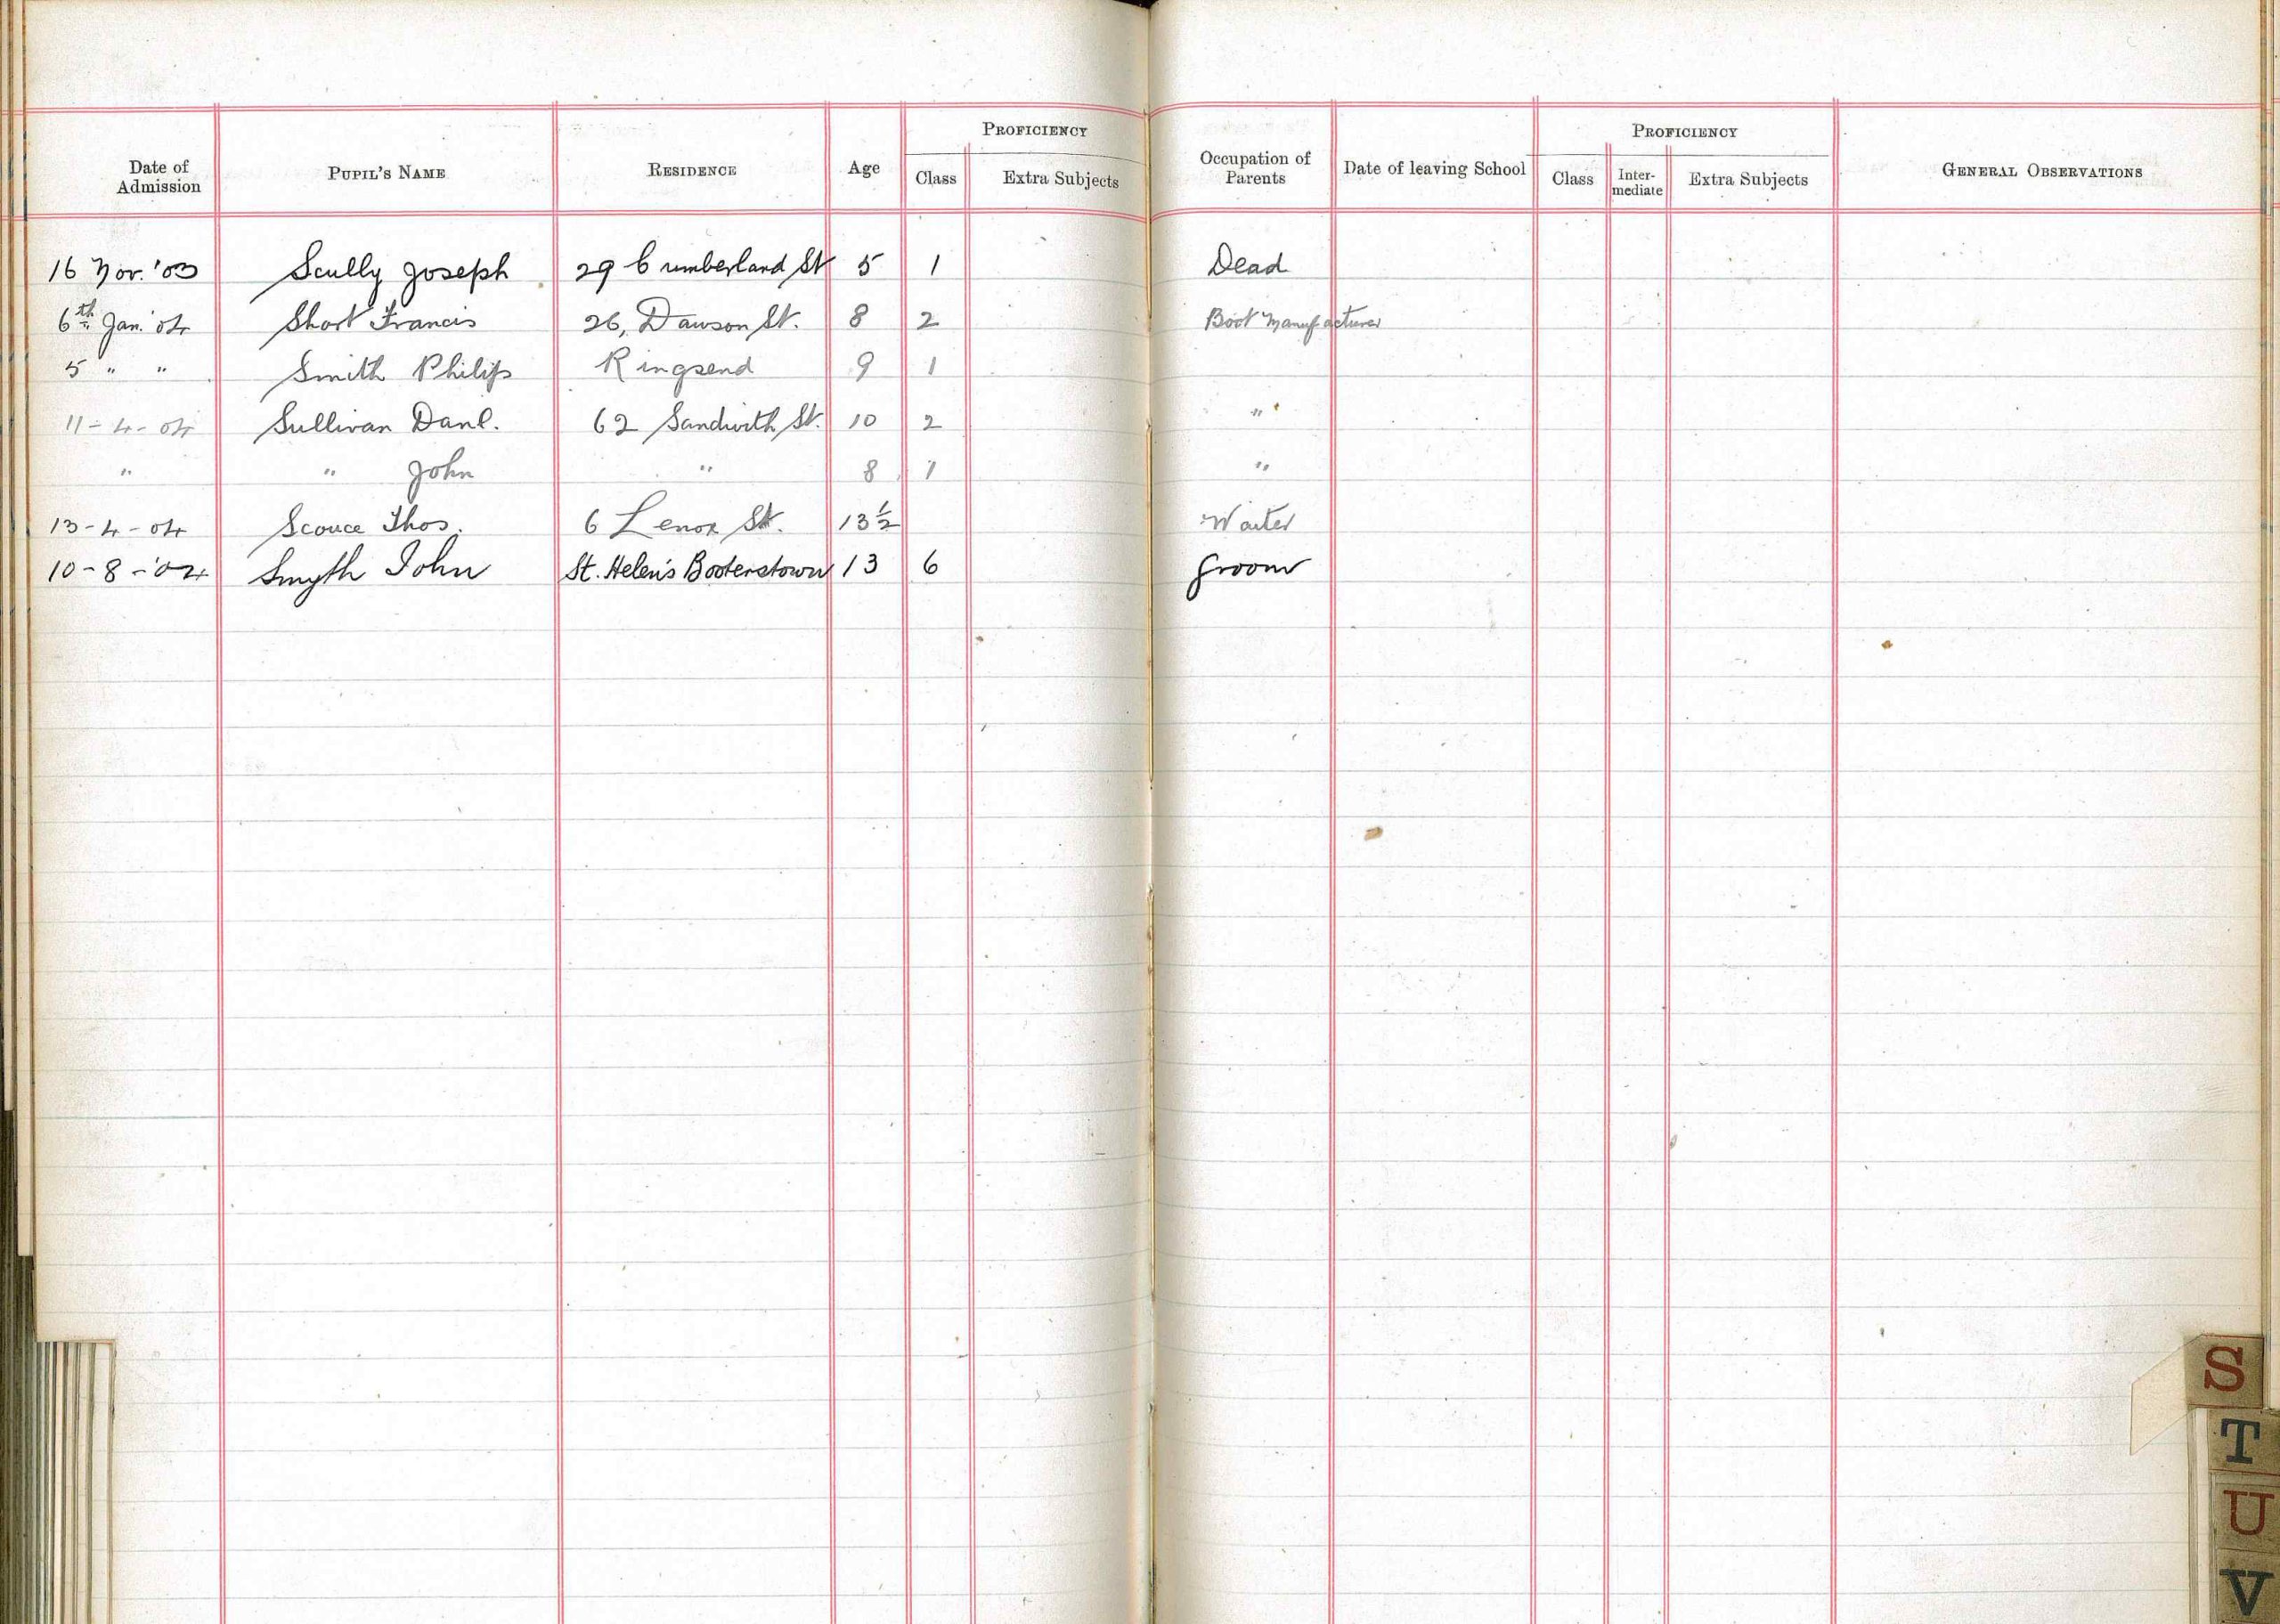 PROFICIENCY PROFICIENCY
Date of Admission PUPIL'S NAME RESIDENCE Age Class Extra Subjects Occupation of Parents Date of leaving School Class Inter-mediate Extra Subjects GENERAL OBSERVATIONS
16 Nov. '03 Scully Joseph 29 Cumberland St 5 1 Dead
6th Jan. '04 Short Francis 26, Dawson St. 8 2 Boot Manufacturer
5 " " Smith Philip Ringsend 9 1
11-4-04 Sullivan Danl. 62 Sandwith St. 10 2 "
" " John " 8 1 "
13-4-04 Scouce Thos. 6 Lenox St. 13½ Waiter
10-8-'04 Smyth John St. Helen's Booterstown 13 6 Groom
S
T
U
V